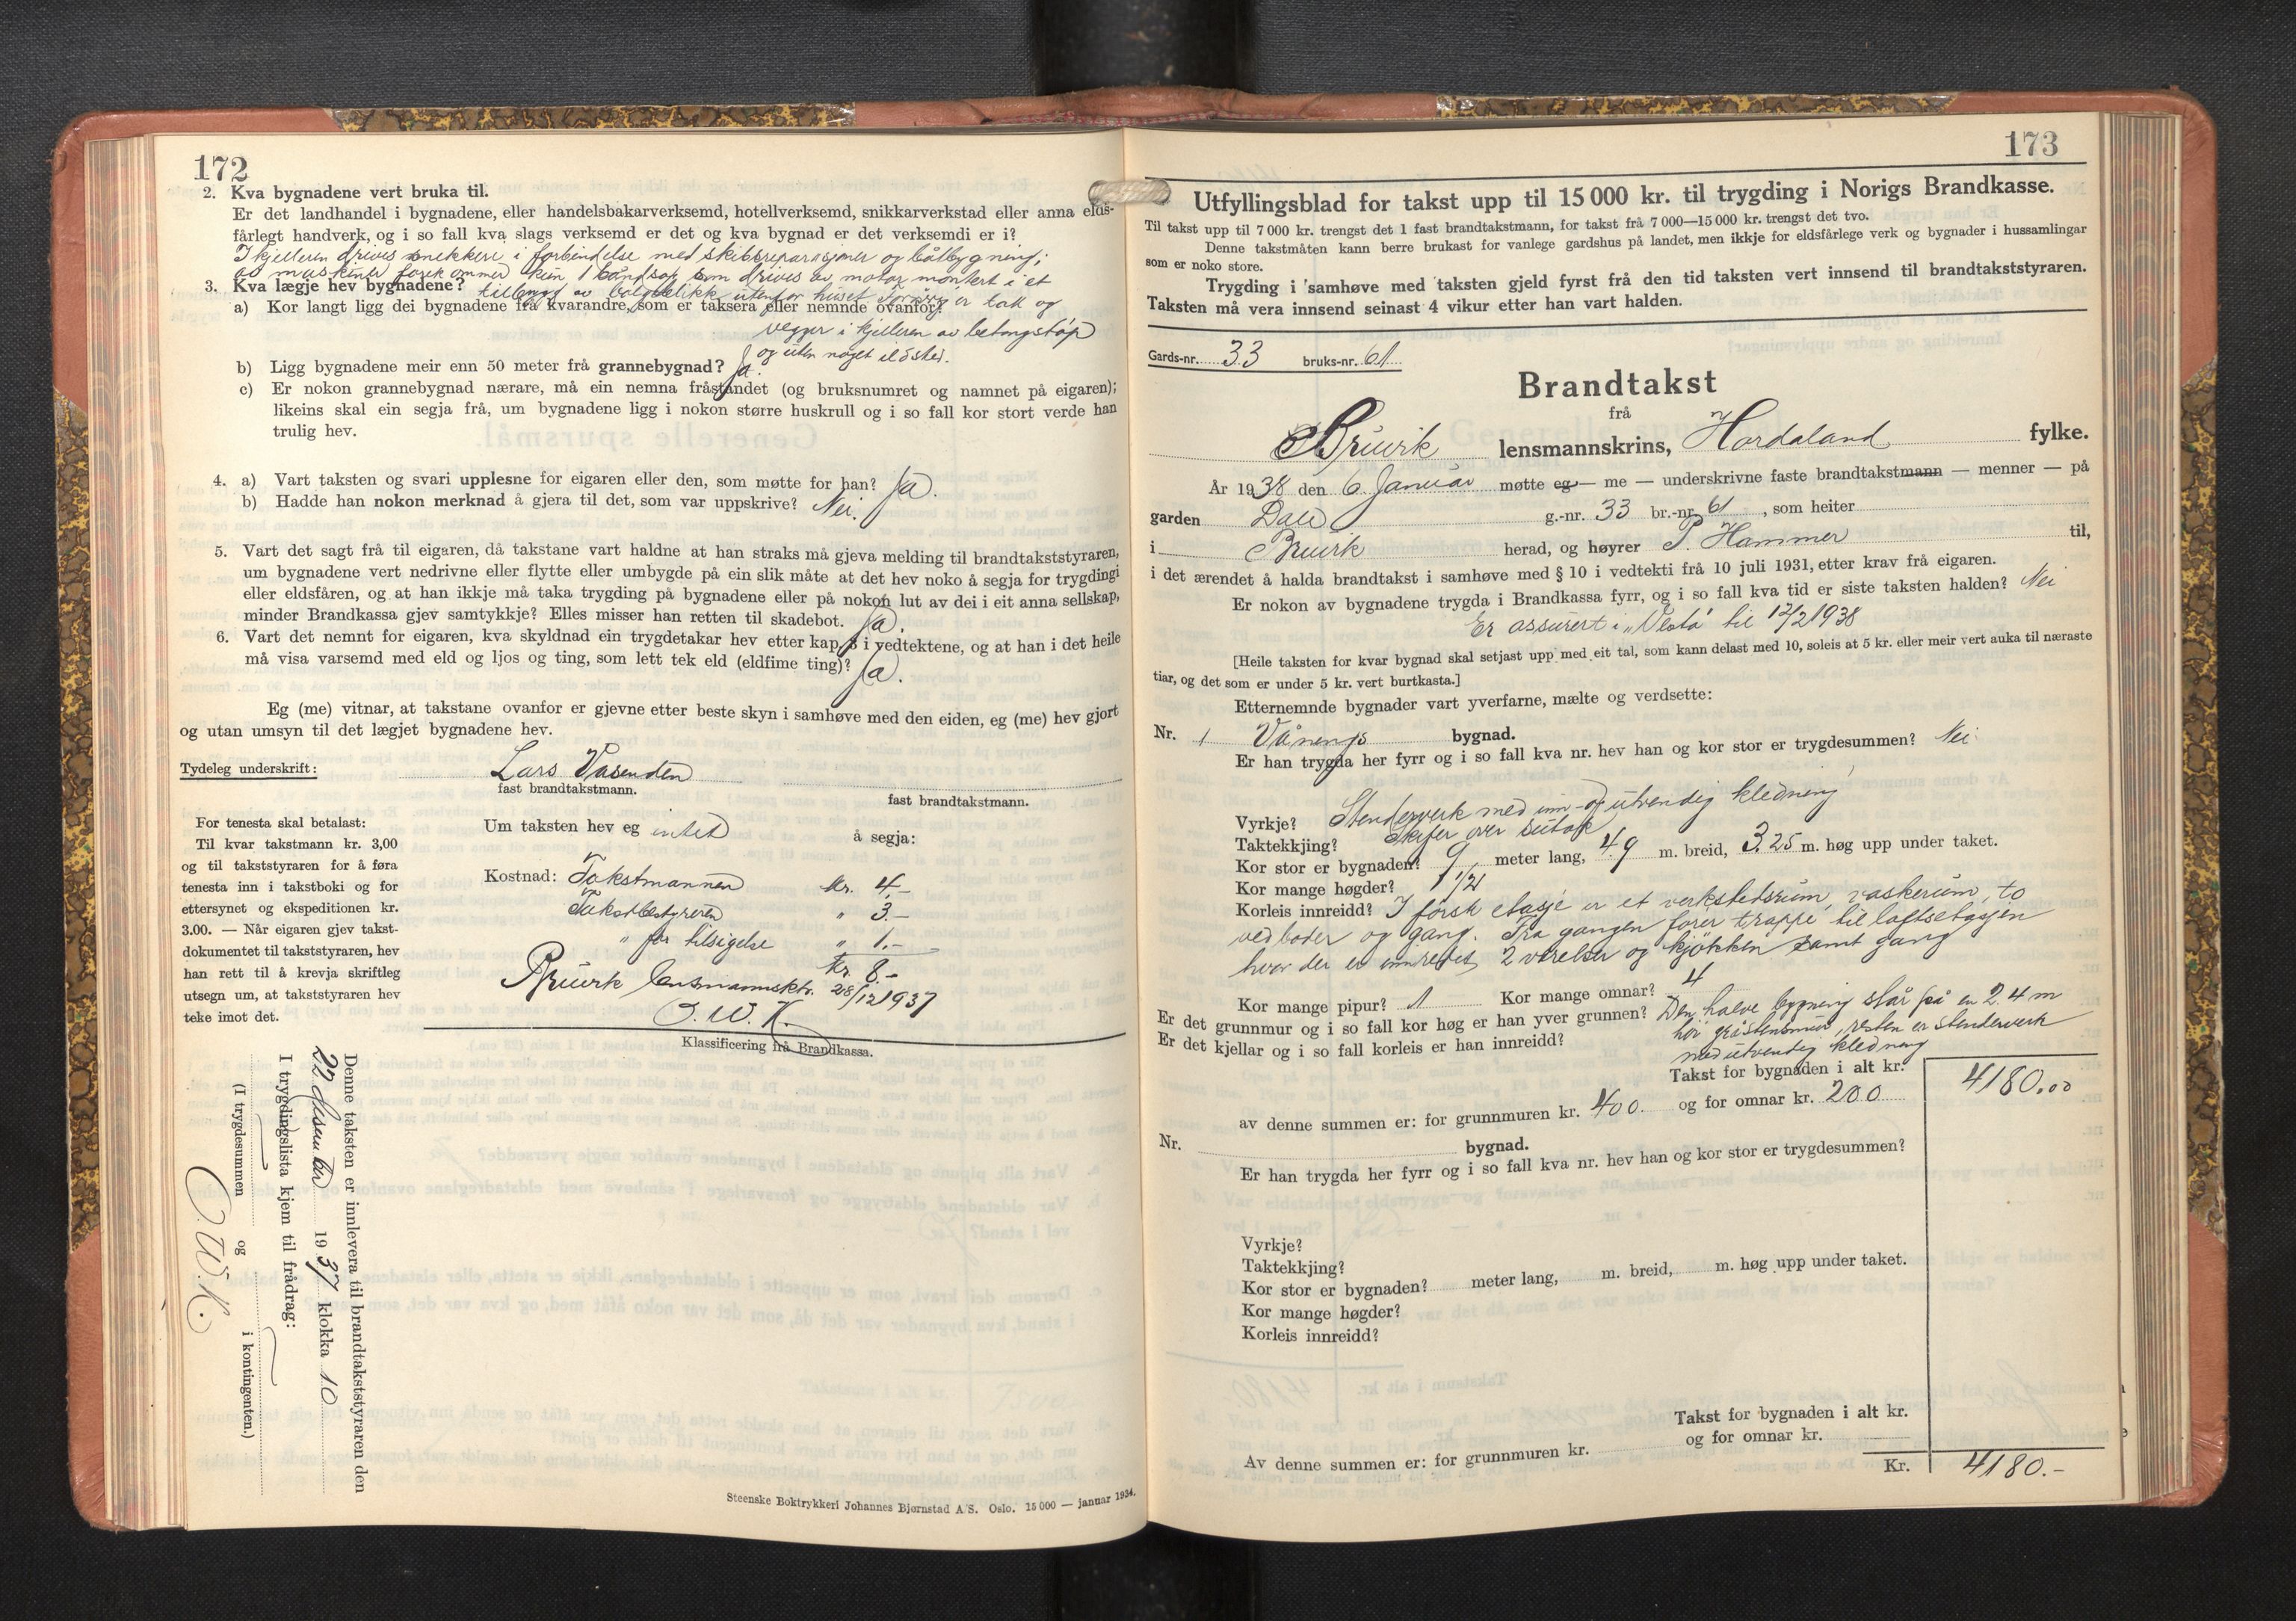 172
2. Kva bygnadene vert bruka til.
Er det landhandel i bygnadene, eller handelsbakarverksemd, hotellverksemd, snikkarverkstad eller anna elds-
fårlegt handverk, og i so fall kva slags verksemd er det og kva bygnad er det verksemdi er i?
I kjelleren drives snekkeri i forbindelse med skibsreparasjoner og båtbygning;
av maskiner forekommer kun 1 båndsag som drives av motor montert i et
3. Kva lægje hev bygnadene? tilbygg av bølgeblikk utenfor huset. Forøvrig er tak og
a) Kor langt ligg dei bygnadene frå kvarandre, som er taksera eller nemnde ovanfor?
vegger i kjelleren av betongstøp
og uten noget ildsted.
b) Ligg bygnadene meir enn 50 meter frå grannebygnad? Ja.
c) Er nokon grannebygnad nærare, må ein nemna fråstandet (og bruksnumret og namnet på eigaren);
likeins skal ein segja frå, um bygnadene ligg i nokon større huskrull og i so fall kor stort verde han
trulig hev.
4. a) Vart taksten og svari upplesne for eigaren eller den, som møtte for han? Ja.
b) Hadde han nokon merknad å gjera til det, som var uppskrive? Nei.
5. Vart det sagt frå til eigaren, då takstane vart haldne at han straks må gjeva melding til brandtakststyraren,
um bygnadene vert nedrivne eller flytte eller umbygde på ein slik måte at det hev noko å segja for trygdingi
eller eldsfåren, og at han ikkje må taka trygding på bygnadene eller på nokon lut av dei i eit anna sellskap,
minder Brandkassa gjev samtykkje? Elles misser han retten til skadebot. Ja.
6. Vart det nemnt for eigaren, kva skyldnad ein trygdetakar hev etter kap. 8 i vedtektene, og at han i det heile
må visa varsemd med eld og ljos og ting, som lett tek eld (eldfime ting)? Ja.
Eg (me) vitnar, at takstane ovanfor er gjevne etter beste skyn i samhøve med den eiden, eg (me) hev gjort
og utan umsyn til det lægjet bygnadene hev.
Tydeleg underskrift: Lars Vasenden
fast brandtakstmann. fast brandtakstmann.
For tenesta skal betalast:
Til kvar takstmann kr. 3,00
og til takststyraren for å føra
tenesta inn i takstboki og for
ettersynet og ekspeditionen kr.
3.00. — Når eigaren gjev takst-
dokumentet til takststyraren, hev
han rett til å krevja skriftleg
utsegn um, at takststyraren hev
teke imot det.
Um taksten hev eg intet å segja:
Kostnad: Takstmannen Kr. 4,-
Takstbestyreren " 3.-
" for tilsigelse " 1.-
Kr. 8.-
Bruvik lensmannsktr. 28/12 1937
O. W. K.
Klassificering frå Brandkassa.
Denne taksten er innlevera til brandtakststyraren den
22 desember 1937 klokka 10
I trygdingslista kjem til frådrag:
(I trygdesummen og i kontingenten.)
O. W. K.
Steenske Boktrykkeri Johannes Bjørnstad A/S. Oslo. 15 000 — januar 1934.
173
Utfyllingsblad for takst upp til 15 000 kr. til trygding i Norigs Brandkasse.
Til takst upp til 7 000 kr. trengst det 1 fast brandtakstmann, for takst frå 7 000—15 000 kr. trengst det tvo.
Denne takstmåten kann berre brukast for vanlege gardshus på landet, men ikkje for eldsfårlege verk og bygnader i hussamlingar
som er noko store.
Trygding i samhøve med taksten gjeld fyrst frå den tid taksten vert innsend til brandtakststyraren.
Taksten må vera innsend seinast 4 vikur etter han vart halden.
Gards-nr. 33 bruks-nr. 61
Brandtakst
frå
Bruvik lensmannskrins, Hordaland fylke.
År 1938 den 6. Januar møtte eg — me — underskrivne faste brandtakstmann — menner — på
garden Dale g.-nr. 33 br.-nr. 61, som heiter
i Bruvik herad, og høyrer P. Hammer til,
i det ærendet å halda brandtakst i samhøve med § 10 i vedtekti frå 10 juli 1931, etter krav frå eigaren.
Er nokon av bygnadene trygda i Brandkassa fyrr, og i so fall kva tid er siste taksten halden? Nei
Er assurert i „Vesta" til 17/2 1938
[Heile taksten for kvar bygnad skal setjast upp med eit tal, som kann delast med 10, soleis at 5 kr. eller meir vert auka til næraste
tiar, og det som er under 5 kr. vert burtkasta.]
Etternemnde bygnader vart yverfarne, mælte og verdsette:
Nr. 1 Vånings bygnad.
Er han trygda her fyrr og i so fall kva nr. hev han og kor stor er trygdesummen? Nei
Vyrkje? Stenderverk med inn- og utvendig kledning
Taktekkjing? Skifer over sutak
Kor stor er bygnaden? 9 meter lang, 4,9 m. breid, 3.25 m. høg upp under taket.
Kor mange høgder? 1 1/2
Korleis innreidd? I første etasje er et verkstedsrum, vaskerum, to
vedboder og gang. Fra gangen fører trappe til loftsetagjen
hvor der er innredet 2 værelser og kjøkken samt gang
Kor mange pipur? 1 Kor mange omnar? 4
Er det grunnmur og i so fall kor høg er han yver grunnen? Den halve bygning står på en 2.4 m
Er det kjellar og i so fall korleis er han innreidd? høi gråstensmur, resten er stenderverk
med utvendig kledning
Takst for bygnaden i alt kr. 4180.00
av denne summen er: for grunnmuren kr. 400. og for omnar kr. 200
Nr. bygnad.
Er han trygda her fyrr og i so fall kva nr. hev han og kor stor er trygdesummen?
Vyrkje?
Taktekkjing?
Kor stor er bygnaden? meter lang, m. breid, m. høg upp under taket.
Kor mange høgder?
Korleis innreidd?
Takst for bygnaden i alt kr.
Av denne summen er: for grunnmuren kr. og for omnar kr.
Kr. 4180.-